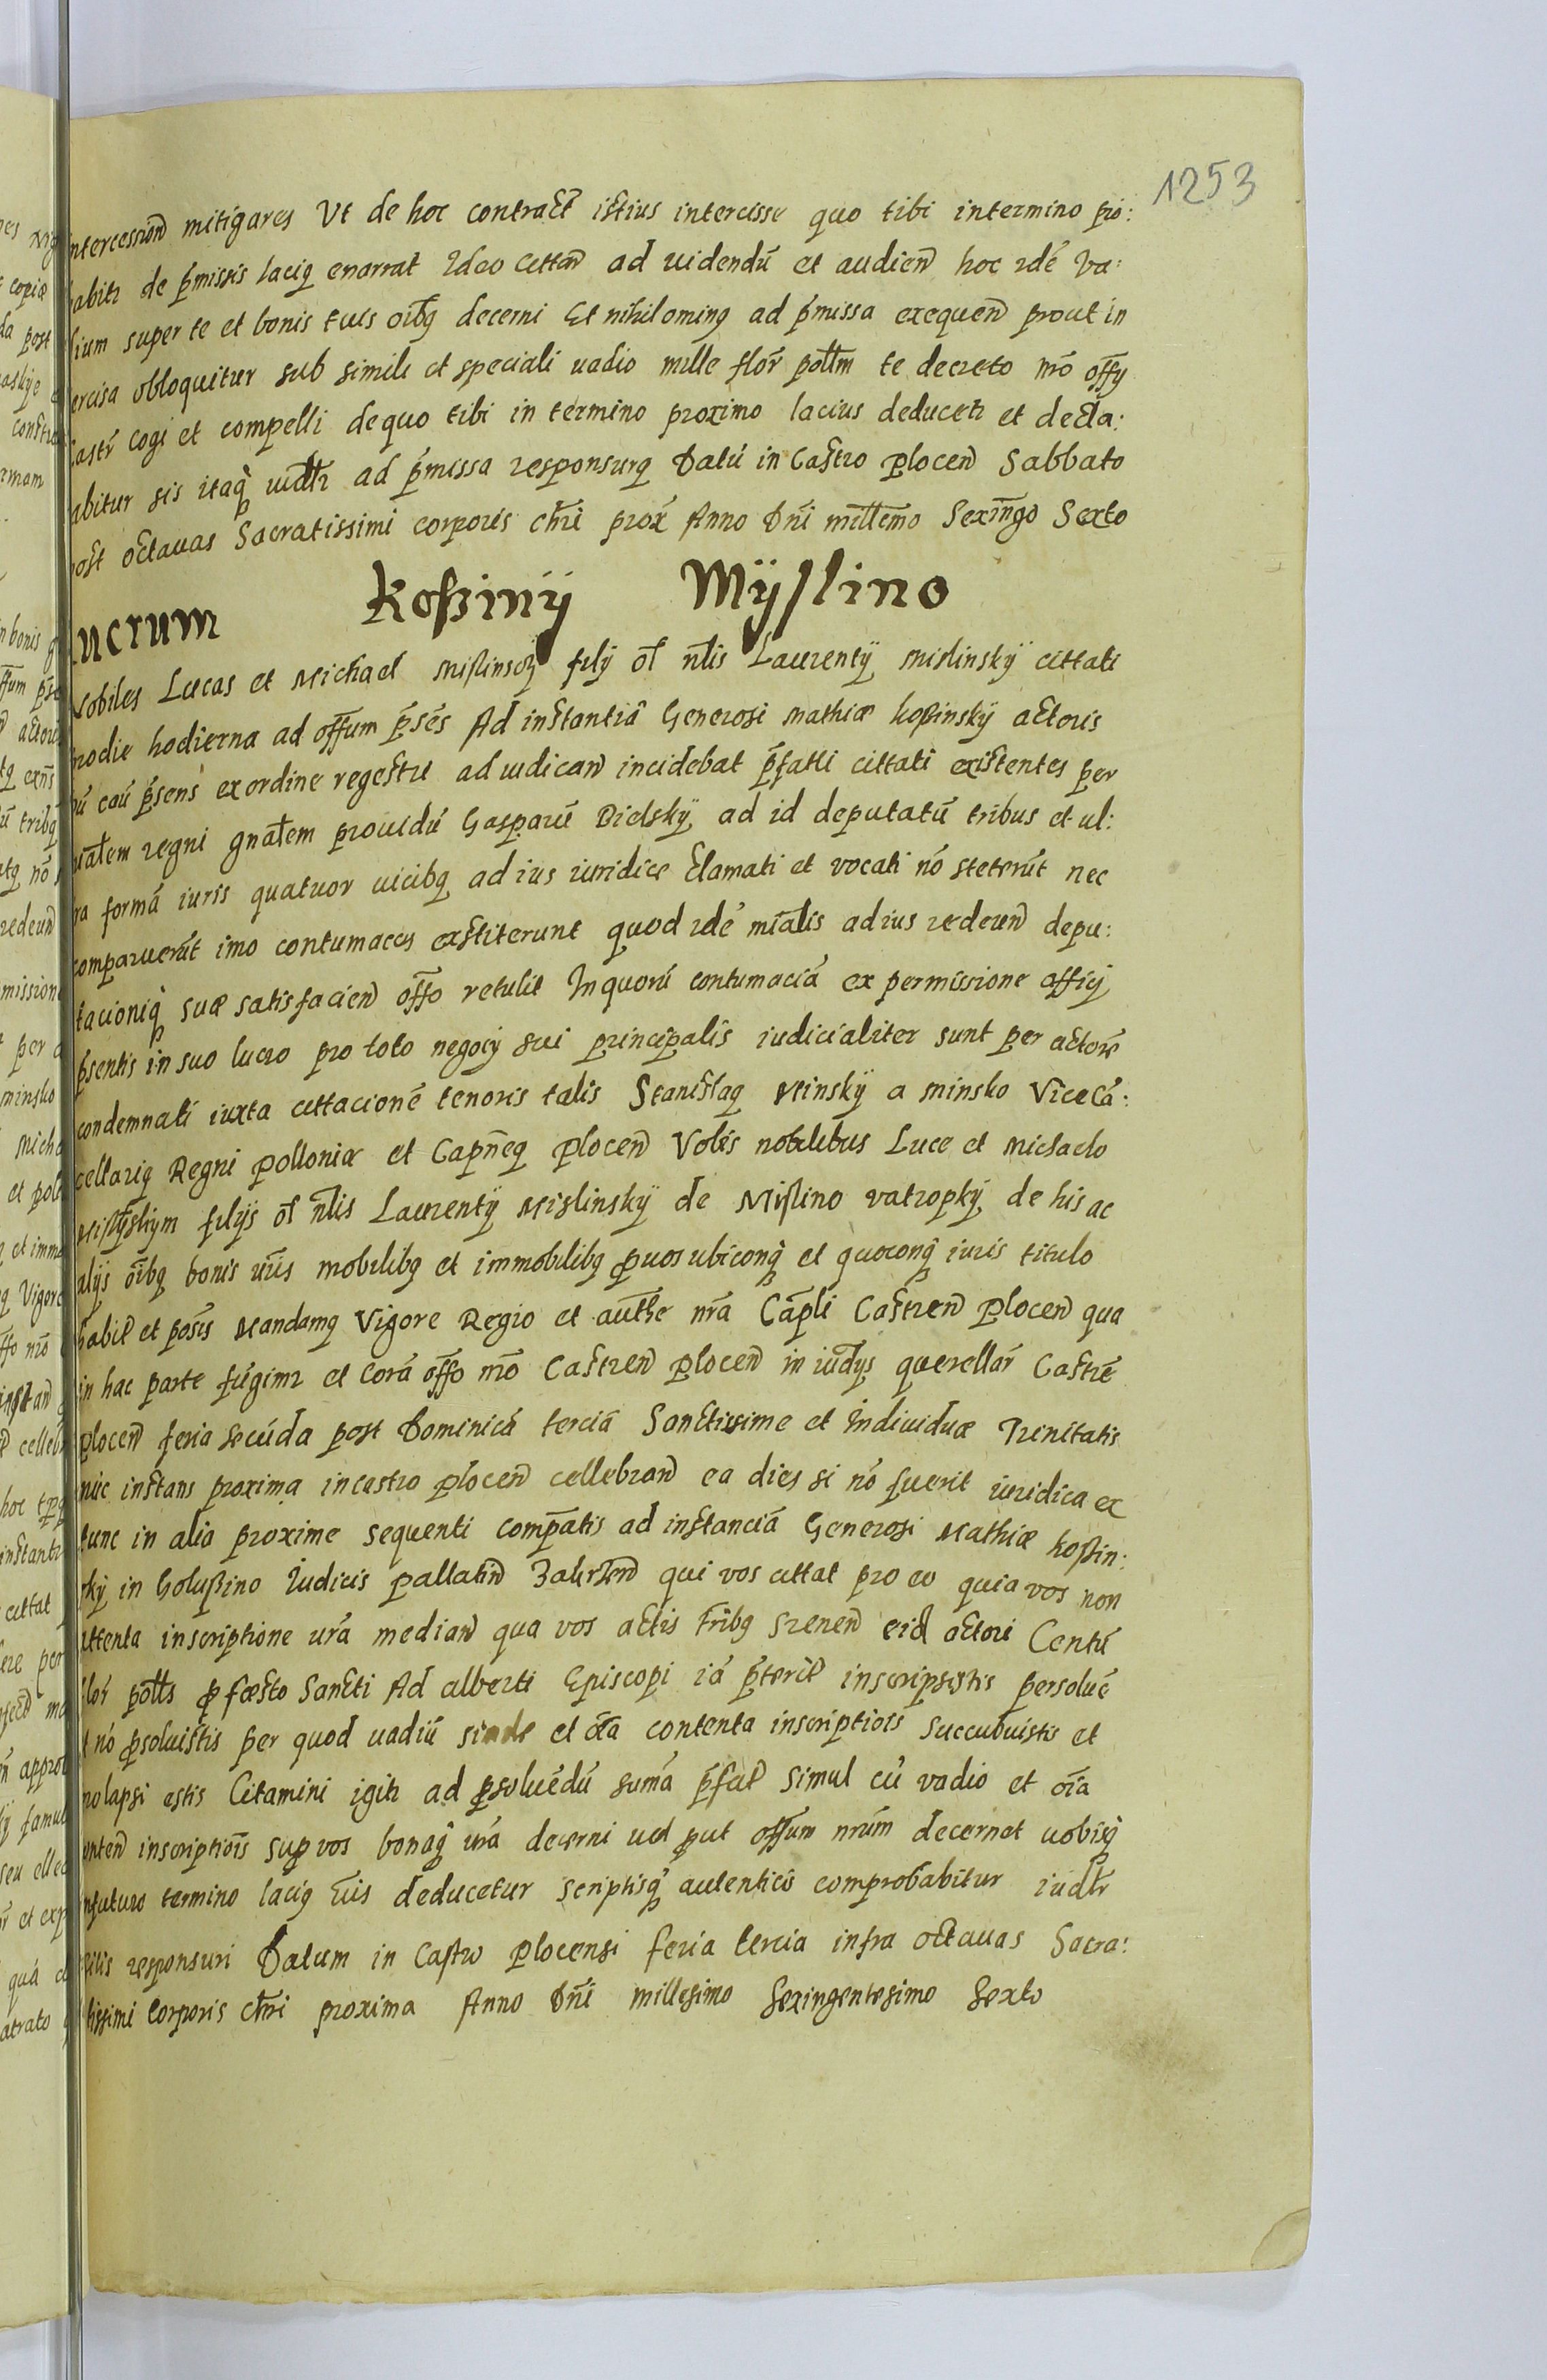 1253
ntercession̄ mitigares Vt de hoc contract̄ istius intercisse quo tibi intermino pro:
abitr de p̄missis laciq enarrat Ideo Cittan̄ ad uidendū et audien̄ hoc idē Va:
lium super te et bonis tuis oībq decerni Et nihilominq ad p̄missa exequen̄ prout in
ercisa obloquitur sub simili et speciali uadio mille flor̄ poltm te decreto nrō offy
Castr̄ cogi et compelli dequo tibi in termino proximo lacius deducetr et decla:
abitur sis itaq̄ iudltr ad p̄missa responsurq Datū in Castro plocen̄ Sabbato
ost octauas Sacratissimi corporis chrī prox̄ Anno Dnī millēmo Sexinḡo Sexto
ucrum Koßinÿ Mÿslino
obiles Lucas et Michael Mislinscy filÿ ol̄ nlis Laurentÿ Mislinskÿ cittati
hodie hodierna ad offum p̄sēs Ad instantiā Generosi Mathiæ Koßinskÿ actoris
ū caū p̄sens ex ordine regestri adiudican̄ incidebat p̄fatti cittati existentes per
iālem regni gnālem prouidū Gasparū Bielskÿ ad id deputatū tribus et ul:
ra formā iuris quatuor uicibq ad ius iuridice Clamati et vocati nō steterūt nec
comparuerūt imo contumaces exstiterunt quod idē miālis ad ius redeun̄ depu:
tacioniq̄ suæ satisfacien̄ offo retulit Inquorū contumaciā ex permissione officÿ
p̄sentis in suo lucro pro toto negocÿ sui principalis iudicialiter sunt per actorē
condemnati iuxta cittacionē tenoris talis Stanislaq Minskÿ a Minsko Vicecā:
cellariq Regni Polloniæ et Capn̄eq plocen̄ Vobis nobilibus Luce et Michaelo
filÿs ol̄ nlis Laurentÿ Mislinskÿ de Mislino vatropkÿ de his ac
alÿs oībq bonis ur̄is mobilibq et immobilibq puos ubiconq̄ et quoconq̄ iuris titulo
habit̄ et posīs Mandamq Vigore Regio et authē nrā Cāpli Castren̄ Plocen̄ qua
in hac parte fūgimr et Corā offo nrō Castren̄ plocen̄ in iudÿs querellar̄ Castrē
plocen̄ feria secūda post Dominicā terciā Sanctissime et Indiuiduæ Trinitatis
nūc instans proxima in castro plocen̄ cellebran̄ ea dies si nō fuerit iuridica ex
tunc in alia proxime sequenti comp̄atis ad instanciā Generosi Mathiæ Koßin:
skÿ in Golußino Iudicis pallatin̄ qui vos cittat pro eo quia vos non
attenta inscriptione urā median̄ qua vos actis tribq Srenen̄ eid̄ actori Centū
flor̄ polts p̄ fæsto Sancti Ad alberti Episcopi iā p̄terit̄ inscripsistis persoluē
t nō psoluistis per quod uadiū et contenta inscriptiois succubuistis et
nolapsi estis Citamini igitr ad psoluēdū sumā p̄fat̄ simul cū vadio et oīa
onten̄ inscriptiois sup vos bonaq̄ urā decerni uel put offum nrum decernet uobisq̄
nfuturo termino laciq deducetur scriptisq̄ autenticis comprobabitur iudltr
itis responsuri Datum in Castro plocensi feria tercia infra octauas Sacra:
tissimi Corporis chrī proxima Anno Dnī millesimo Sexingentesimo Sexto